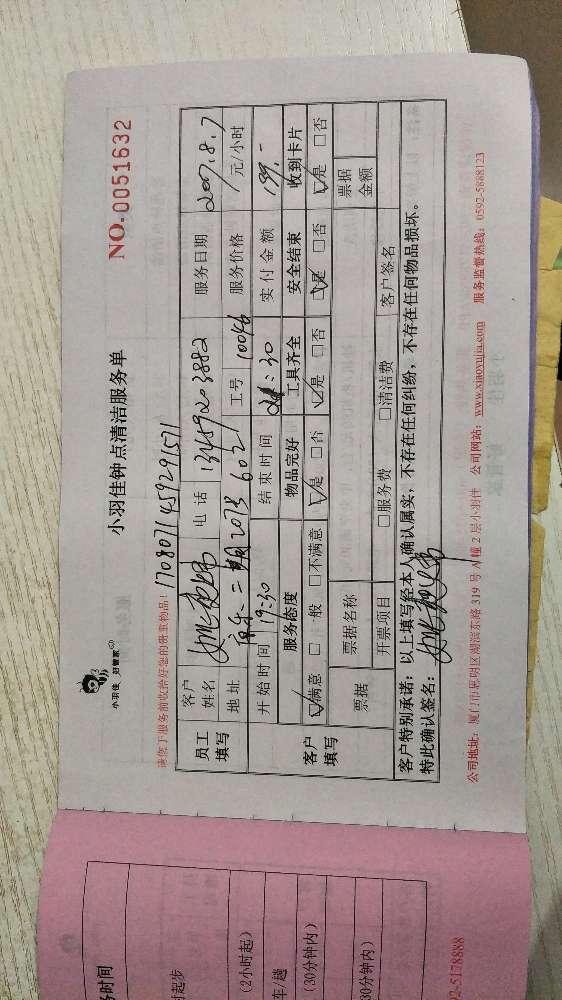 小羽佳 好管家
小羽佳钟点清洁服务单
NO.0051632
请您于服务前收拾好您的贵重物品!
1708071459291571
员工填写
客户姓名
电话 13459203882
服务日期 2017.8.7
地址
二期2013 6021
工号 10046
服务价格 元/小时
开始时间 19:30
结束时间
实付金额 139.-
客户填写
服务态度 物品完好 工具齐全 安全结束 收到卡片
☑满意 □一般 □不满意 ☑是 □否 ☑是 □否 ☑是 □否 ☑是 □否
票据 票据名称 票据金额
开票项目 □服务费 □清洁费 客户签名
客户特别承诺:以上填写经本人确认属实,不存在任何纠纷,不存在任何物品损坏。
特此确认签名:
公司地址:厦门市思明区湖滨东路 319 号 A 幢 2 层小羽佳 公司网站:www.xiaoyujia.com 服务监督热线:0592-5888123
务时间
时起步
(2小时起)
车/趟
(30分钟内)
30分钟内)
2-5178888